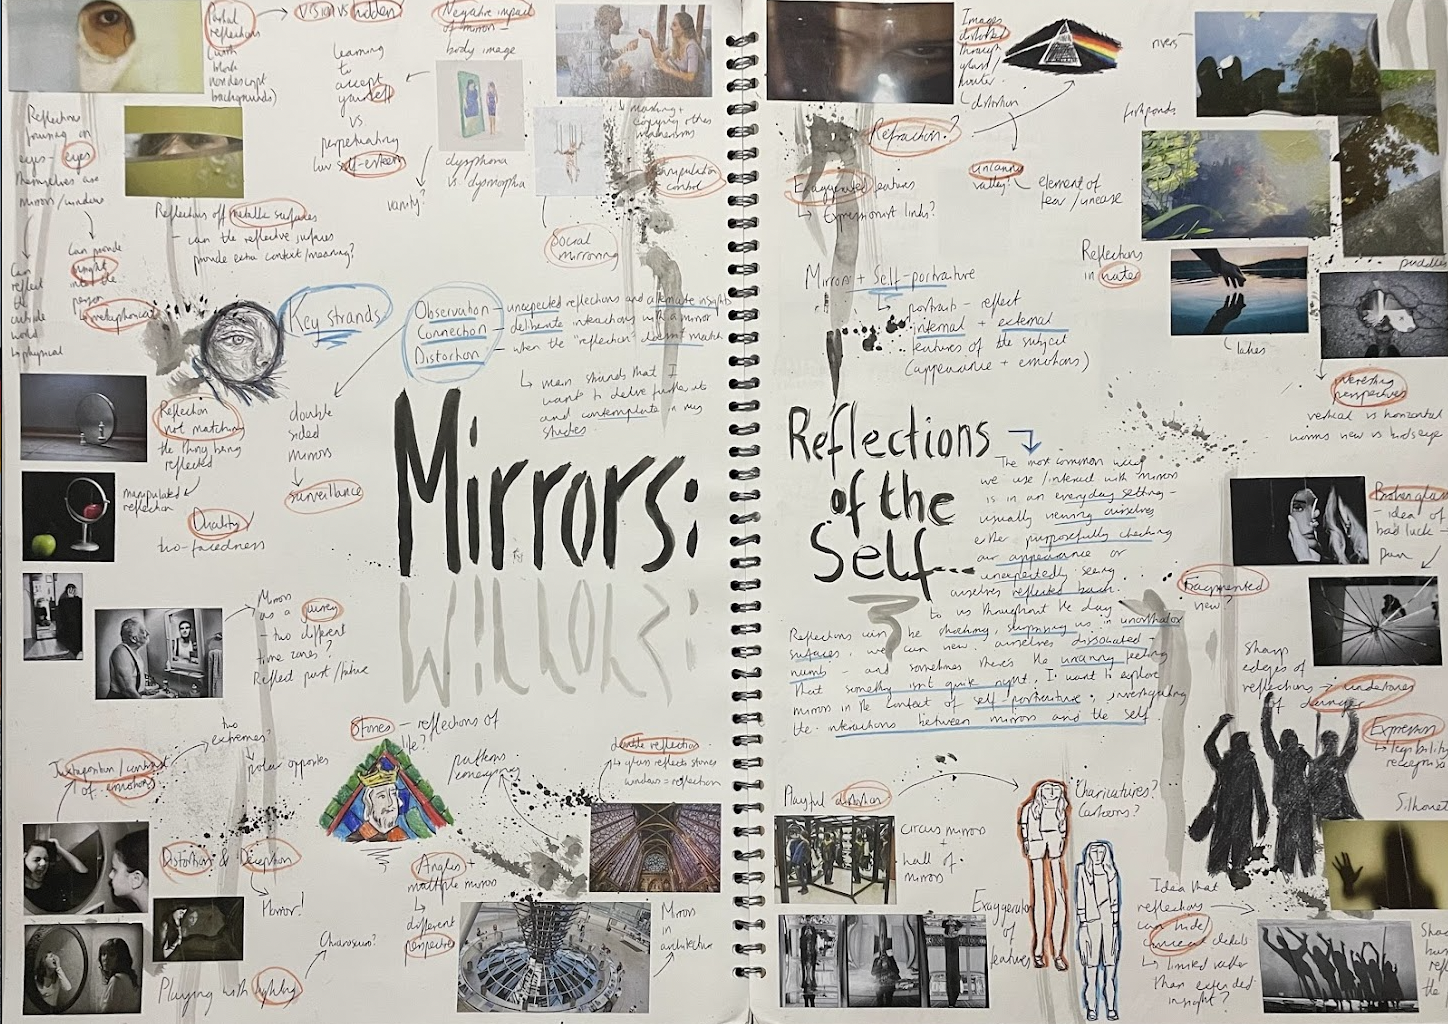 Partial
reflections
(with
blank
nondescript
backgrounds)
VISION vs hidden?
learning
to
accept
yourself
vs
perpetuating
low self-esteem
Negative impact
of mirrors –
body image
vanity?
dysphoria
vs dysmorphia
Social
mirroring
masking +
copying other
mechanisms
manipulation
control
Reflections
focusing on
eyes – eyes
themselves are
mirrors/windows
Can
reflect
the
outside
world
↳ physical
Can provide
insight
into the
person
↳ metaphorical
Reflections off metallic surfaces
– can the reflective surfaces
provide extra context/meaning?
Key strands
Observation – unexpected reflections and alternate insights
Connection – deliberate interactions with a mirror
Distortion – when the "reflection" doesn't match
↳ main strands that I
want to delve further into
and contemplate in my
studies.
double
sided
mirrors
↓
surveillance
Reflection
not matching
the thing being
reflected
manipulated
reflection
Duality
two-facedness
Mirrors:
Mirrors as a
– two different
time zones?
Reflect past/future
two
extremes?
↳ polar opposites
Juxtaposition/contrast
of emotions
Distortion & Deception
↳ Horror!
Playing with lighting
Chiaroscuro?
Stories – reflections of
life?
patterns/
double reflection
↳ glass reflects stories
windows = reflection
Angles +
multiple mirrors
↳
different
perspectives
Mirrors
in
architecture
Images
distorted
through
glass/
water
↳ distortion
Refraction?
Exaggerated features
↳ Expressionist links?
uncanny
valley!
element of
fear/unease
rivers
fishponds
Reflections
in water
puddles
lakes
interesting
perspectives
vertical vs horizontal
worms view vs birdseye
Mirrors + Self-portraiture
↳ portraits – reflect
internal + external
features of the subject
(appearance + emotions)
Reflections
of the
Self...
The most common way
we use/interact with mirrors
is in an everyday setting –
usually viewing ourselves
either purposefully checking
our appearance or
unexpectedly seeing
ourselves reflected back
to us throughout the day.
Reflections can be shocking, surprising us in unorthodox
surfaces, we can view ourselves dissociated –
numb – and sometimes there's the uncanny feeling
that something isn't quite right. I want to explore
mirrors in the context of self-portraiture, investigating
the interactions between mirrors and the self
Broken glass
– idea of
bad luck –
pain
Fragmented
view?
Sharp
edges of
reflections → undertones
of danger
Expression
↳ legibility
Playful distortion
Circus mirrors
+
hall of
mirrors
Charicatures?
Cartoons?
Exaggeration
of
features
Idea that
reflections
can hide/
conceal details
↳ limited rather
than extended
insight?